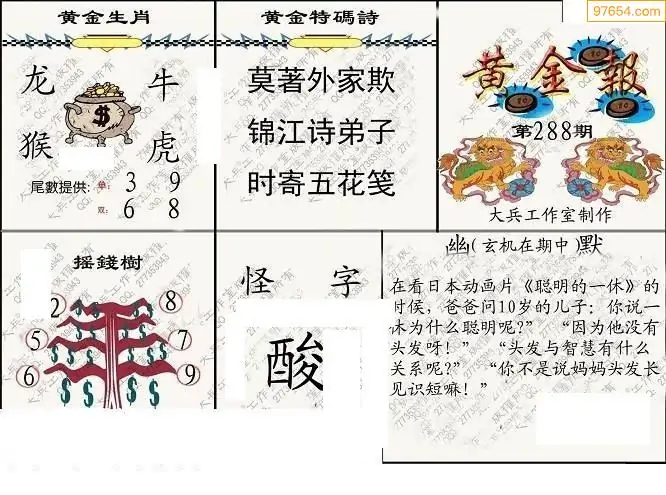 97654.com
黄金生肖
龙 牛
猴 虎
$
尾數提供: 单: 3 9
双: 6 8
黄金特碼詩
莫著外家欺
锦江诗弟子
时寄五花笺
黄金報
第288期
大兵工作室制作
摇錢樹
2 8
5 7
6 9
怪 字
酸
幽(玄机在期中)默
在看日本动画片《聪明的一休》的
时侯，爸爸问10岁的儿子：你说一
休为什么聪明呢?” “因为他没有
头发呀！” “头发与智慧有什么
关系呢?” “你不是说妈妈头发长
见识短嘛！”